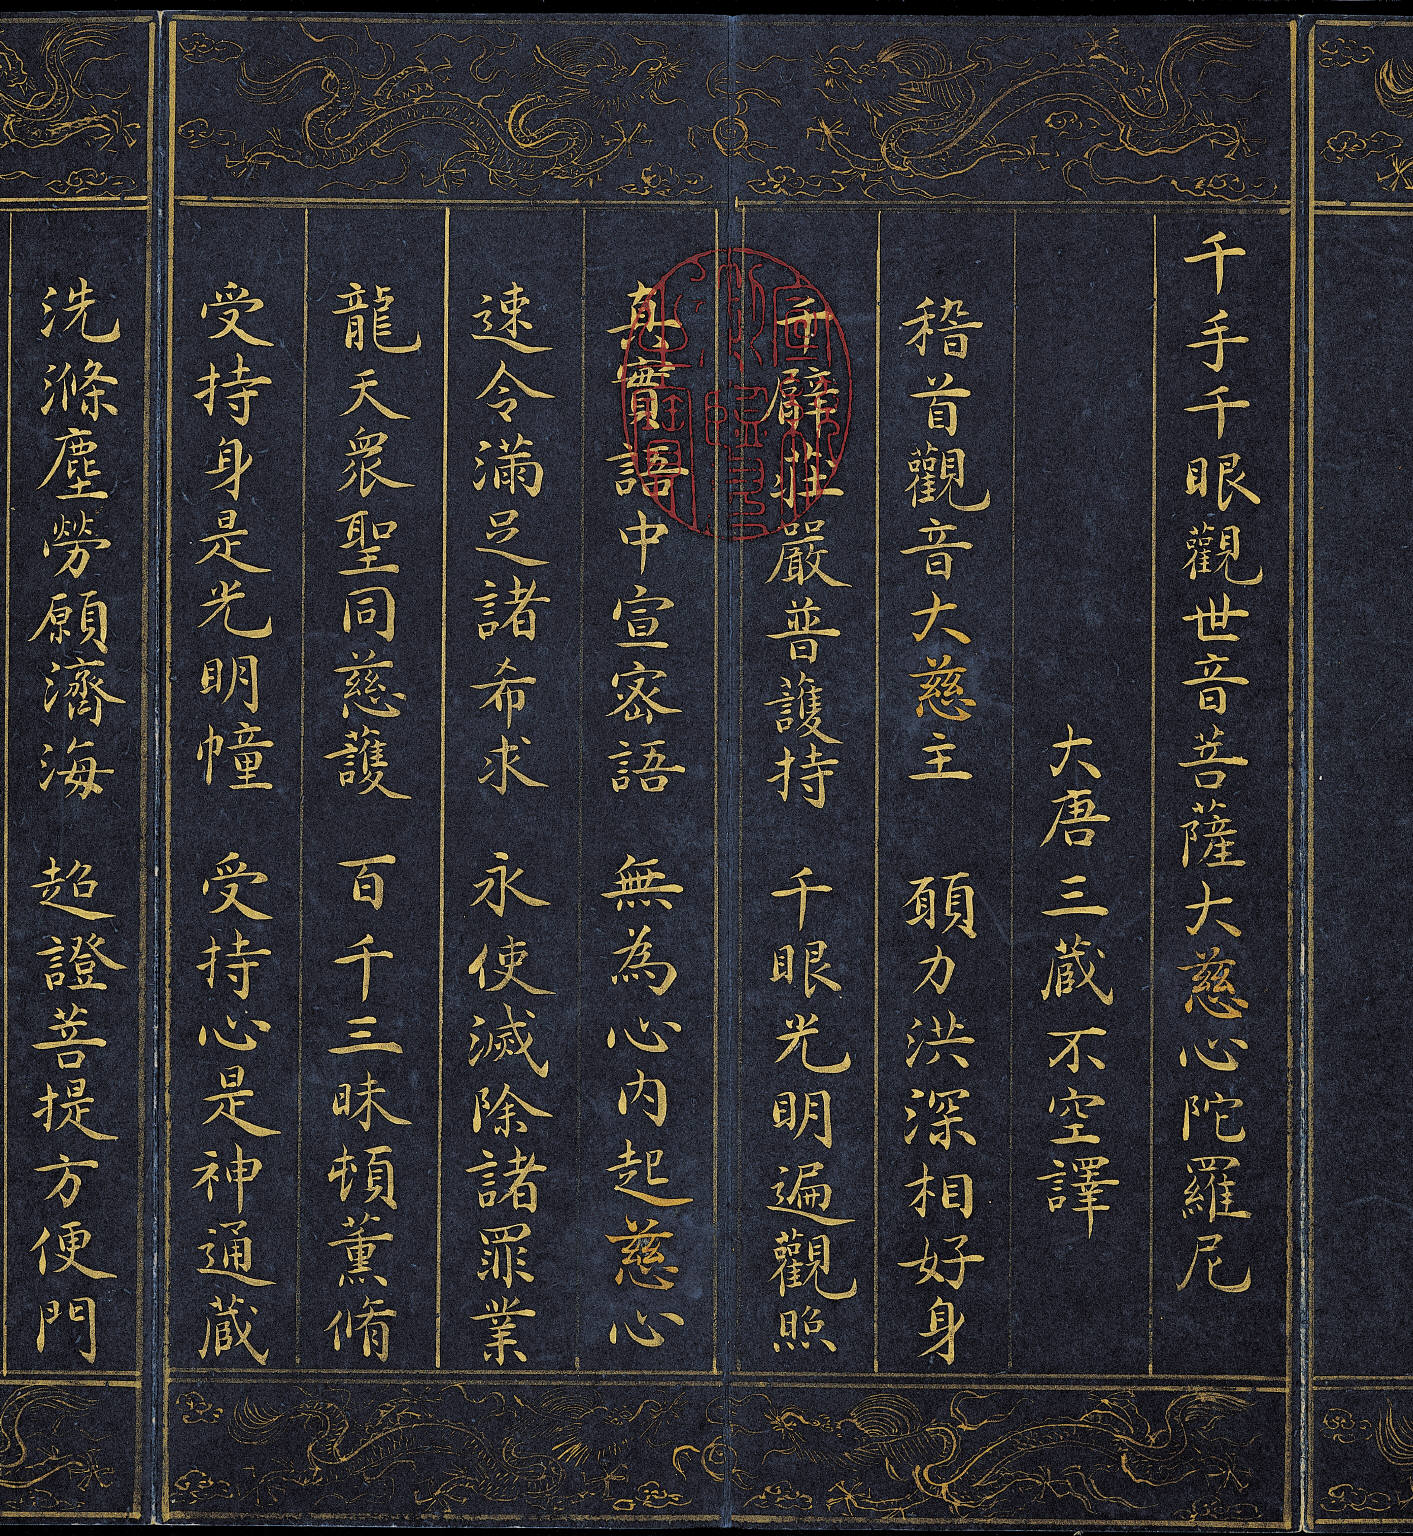 千手千眼觀世音菩薩大慈心陀羅尼
大唐三藏不空譯
稽首觀音大慈主 願力洪深相好身
千臂莊嚴普護持 千眼光明遍觀照
真實語中宣密語 無為心內起慈心
速令滿足諸希求 永使滅除諸罪業
龍天衆聖同慈護 百千三昧頓薰脩
受持身是光明幢 受持心是神通藏
洗滌塵勞願濟海 超證菩提方便門